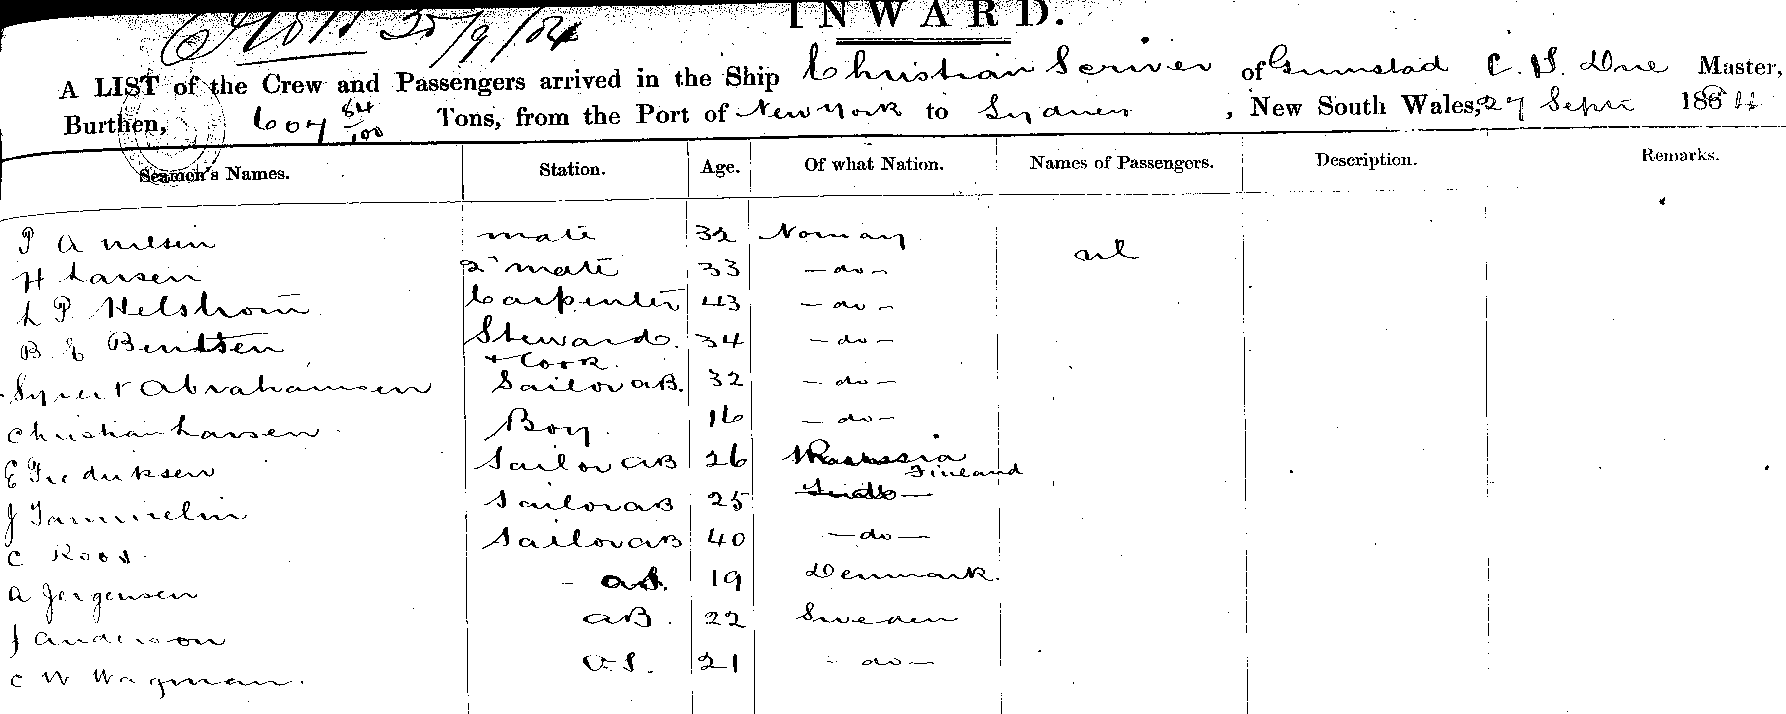 INWARD.
25/9/84
A LIST of the Crew and Passengers arrived in the Ship Christian Scriver of Grimstad C. S. Due Master,
Burthen, 607 84/100 Tons, from the Port of New York to Sydney, New South Wales, 27 Sept 1884
Seamen's Names. Station. Age. Of what Nation. Names of Passengers. Description. Remarks.
P A Nilsen mate 32 Norway nil
H Larsen 2 mate 33 - do -
L P Helstrom Carpenter 43 - do -
B E Bentsen Steward + Cook. 34 - do -
Syvert Abrahamsen Sailor AB. 32 - do -
Christian Larsen Boy. 16 - do -
E Fredriksen Sailor AB 26 Russia Finland
J Tammelin Sailor AB 25
C Roos Sailor AB 40 - do -
A Jorgensen 19 Denmark.
J Anderson AB. 22 Sweden
C W Wagman. O.S. 21 - do -